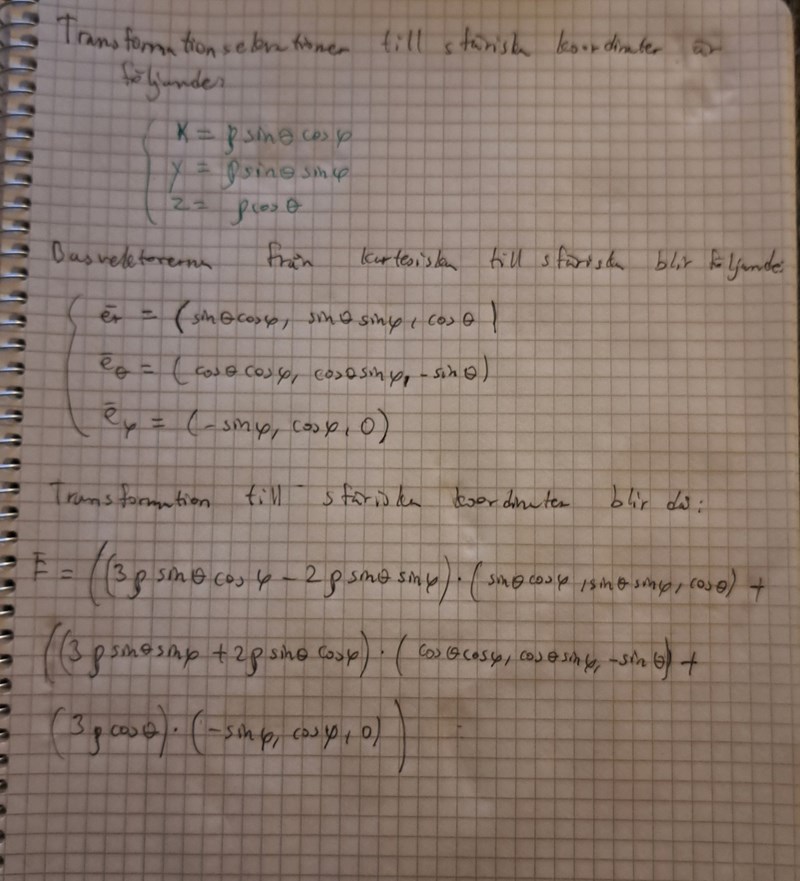 Transformationsekvationer till sfäriska koordinater är
följande:
x = ρ sinθ cosφ
y = ρ sinθ sinφ
z = ρ cosθ
Basvektorerna från kartesiska till sfäriska blir följande:
ē_r = (sinθ cosφ, sinθ sinφ, cosθ)
ē_θ = (cosθ cosφ, cosθ sinφ, -sinθ)
ē_φ = (-sinφ, cosφ, 0)
Transformation till sfäriska koordinater blir då:
F = ((3ρ sinθ cosφ - 2ρ sinθ sinφ) · (sinθ cosφ, sinθ sinφ, cosθ) +
((3ρ sinθ sinφ + 2ρ sinθ cosφ) · (cosθ cosφ, cosθ sinφ, -sinθ) +
(3ρ cosθ) · (-sinφ, cosφ, 0))